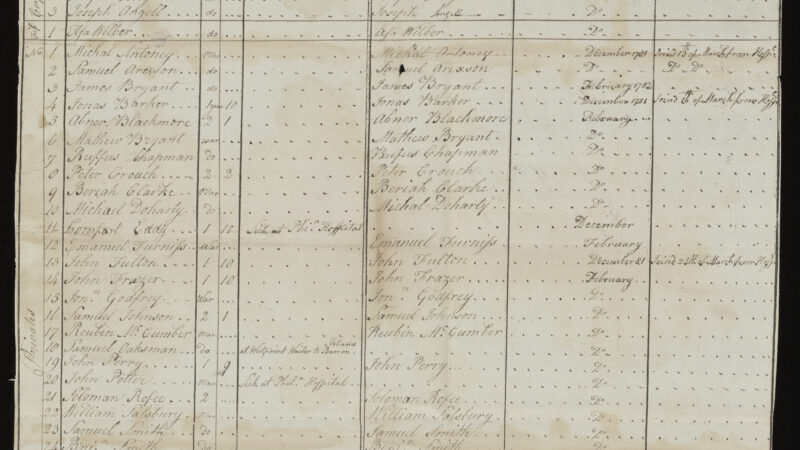 3 Joseph Axgell do Joseph Axgell Do
1 Asa Wilber do Asa Wilber Do
No 1 Michal Antoney War Michal Antoney December 1781 Joind of March from Hosp
2 Samuel Arexson do Samuel Arexson Do Do Do
3 James Bryant do James Bryant February 1782
4 Jonas Barker 1 10 Jonas Barker December 1781 Joind of March from Hosp
5 Abner Blackmore 2 1 Abner Blackmore February
6 Mathew Bryant war Mathew Bryant Do
7 Ruffus Chapman do Rufus Chapman Do
8 Peter Crouch 2 2 Peter Crouch Do
9 Bereah Clarke War Bereah Clarke Do
10 Michael Doharty do Michal Doharty Do
11 Comfort Eddy 1 10 Sick at Phila Hospital December
12 Emanuel Furniss War Emanuel Furniss February
13 John Fulton 1 10 John Fulton December 81 Joind of March from Hosp
14 John Frazer 1 10 John Frazer February
15 Jon Godfrey War Jon Godfrey Do
16 Samuel Johnson 2 1 Samuel Johnson Do
17 Reubin McCumber war Reubin McCumber Do
Privates
18 Samuel Oaksman do at Westpoint Waiter to Do
19 John Perry 1 9 John Perry Do
20 John Potter War Sick at Phila Hospital Do
21 Soloman Rofee 2 Soloman Rofee Do
22 William Salsbury War William Salsbury Do
23 Samuel Smith do Samuel Smith Do
24 Benj Smith do Benj Smith Do